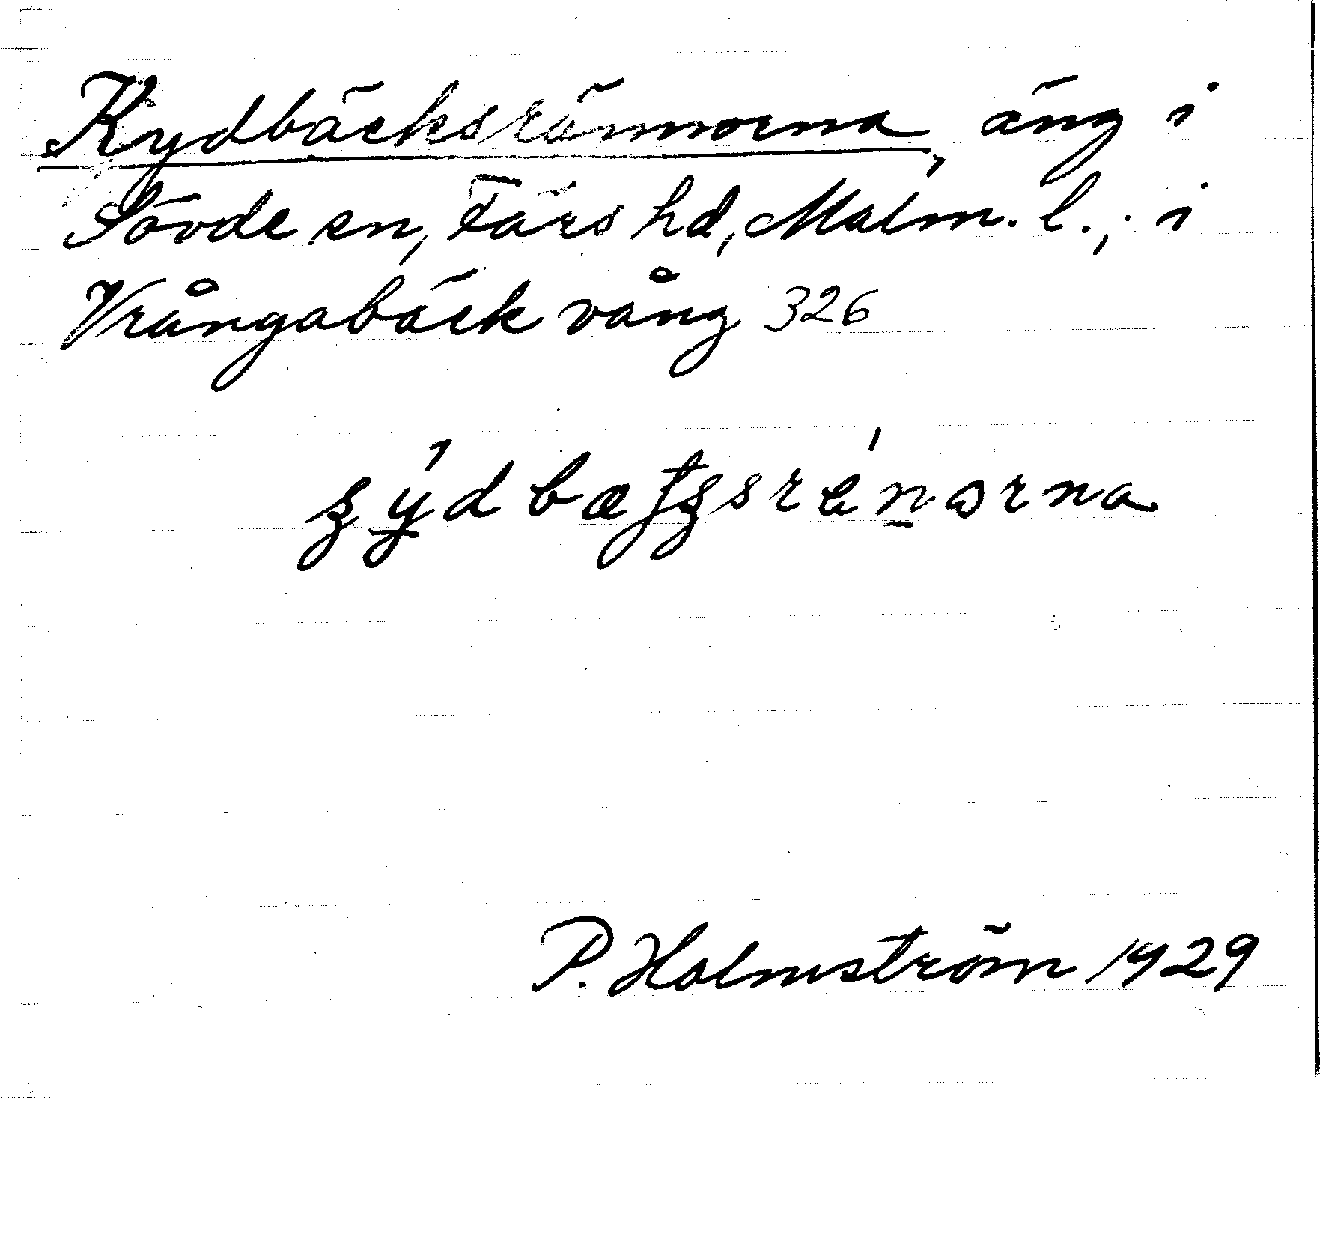 Kydbäcksrännorna, äng i
Sövde sn, Färs hd, Malm. l., i
Vrångabäck vång 326
P. Holmström 1929